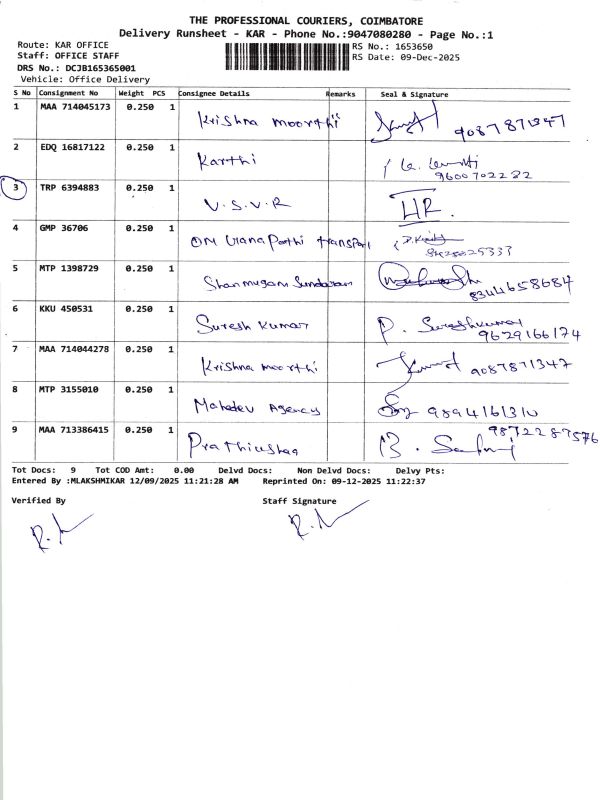 THE PROFESSIONAL COURIERS, COIMBATORE
Delivery Runsheet - KAR - Phone No.:9047080280 - Page No.:1
Route: KAR OFFICE RS No.: 1653650
Staff: OFFICE STAFF RS Date: 09-Dec-2025
DRS No.: DCJB165365001
Vehicle: Office Delivery
S No Consignment No Weight PCS Consignee Details Remarks Seal & Signature
1 MAA 714045173 0.250 1 Krishna moorthi 9087871347
2 EDQ 16817122 0.250 1 Karthi 9600702232
3 TRP 6394883 0.250 1 V.S.V.R
4 GMP 36706 0.250 1 OM Transport
5 MTP 1398729 0.250 1 Shanmugam Sundaram 8344658684
6 KKU 450531 0.250 1 Suresh Kumar P. Sureshkumar 9629166174
7 MAA 714044278 0.250 1 Krishna moorthi 9087871347
8 MTP 3155010 0.250 1 Mahadev Agency
9 MAA 713386415 0.250 1
Tot Docs: 9 Tot COD Amt: 0.00 Delvd Docs: Non Delvd Docs: Delvy Pts:
Entered By :MLAKSHMIKAR 12/09/2025 11:21:28 AM Reprinted On: 09-12-2025 11:22:37
Verified By Staff Signature